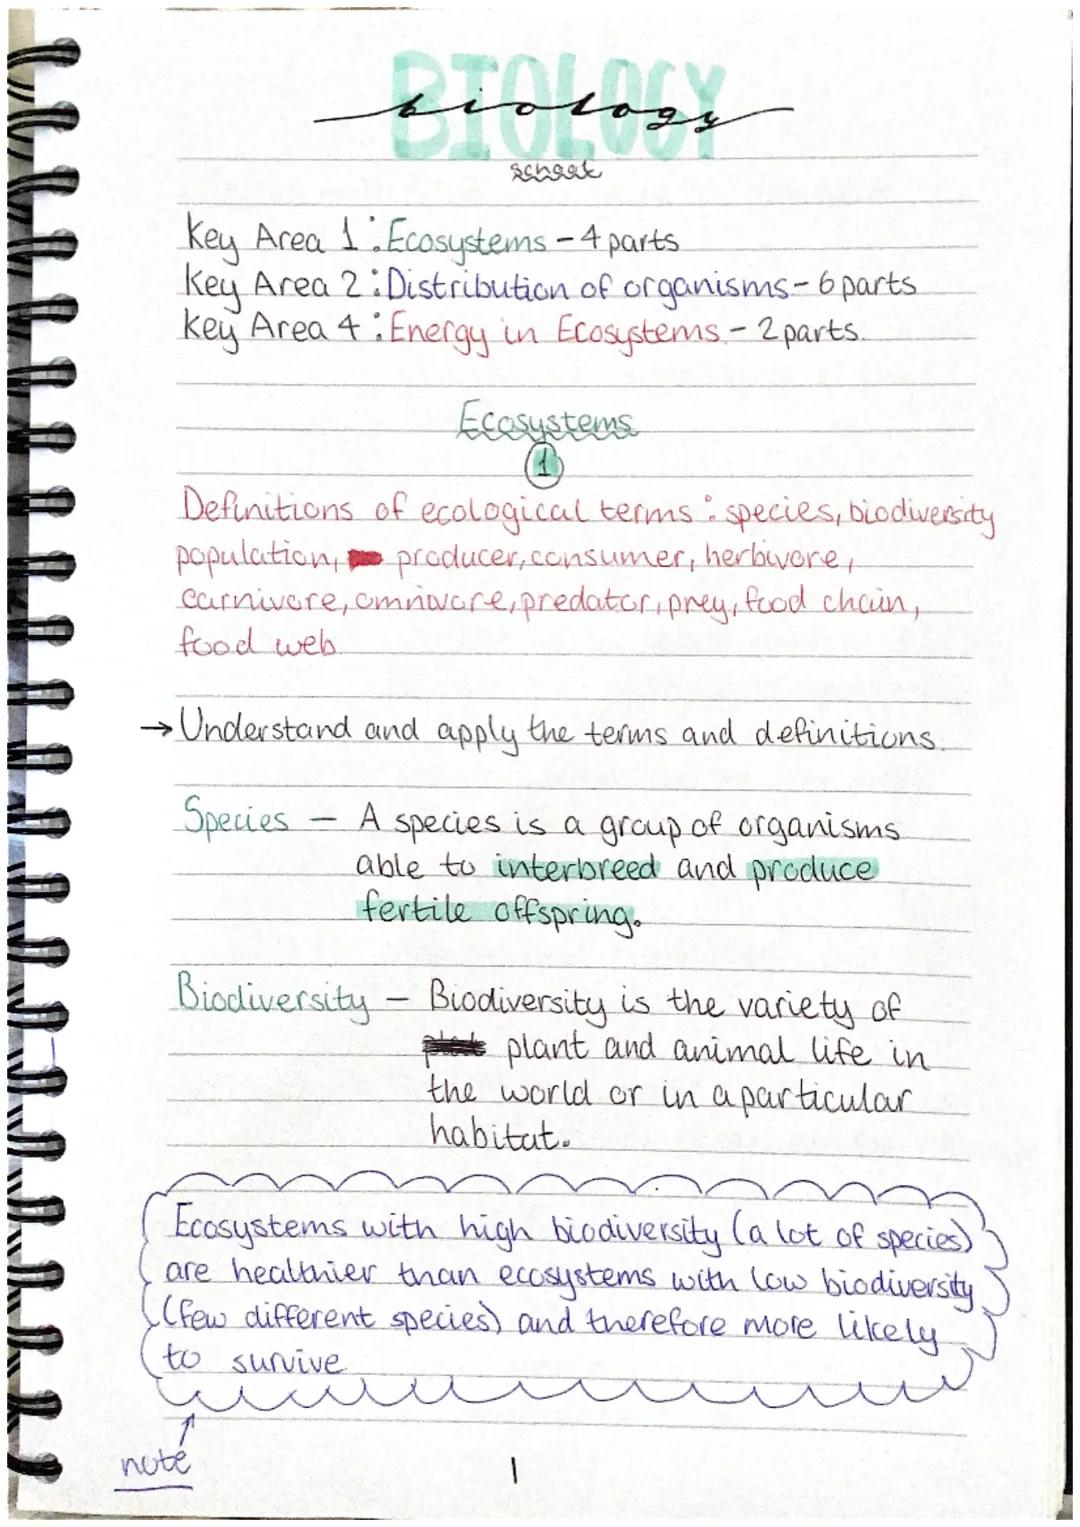 BIOLOGY
biology
school
Key Area 1: Ecosystems - 4 parts
Key Area 2: Distribution of organisms - 6 parts
Key Area 4: Energy in Ecosystems - 2 parts.
Ecosystems
1
Definitions of ecological terms: species, biodiversity
population, producer, consumer, herbivore,
carnivore, omnivore, predator, prey, food chain,
food web
→ Understand and apply the terms and definitions.
Species - A species is a group of organisms
able to interbreed and produce
fertile offspring.
Biodiversity - Biodiversity is the variety of
plant and animal life in
the world or in a particular
habitat.
Ecosystems with high biodiversity (a lot of species)
are healthier than ecosystems with low biodiversity
(few different species) and therefore more likely
to survive
note
1